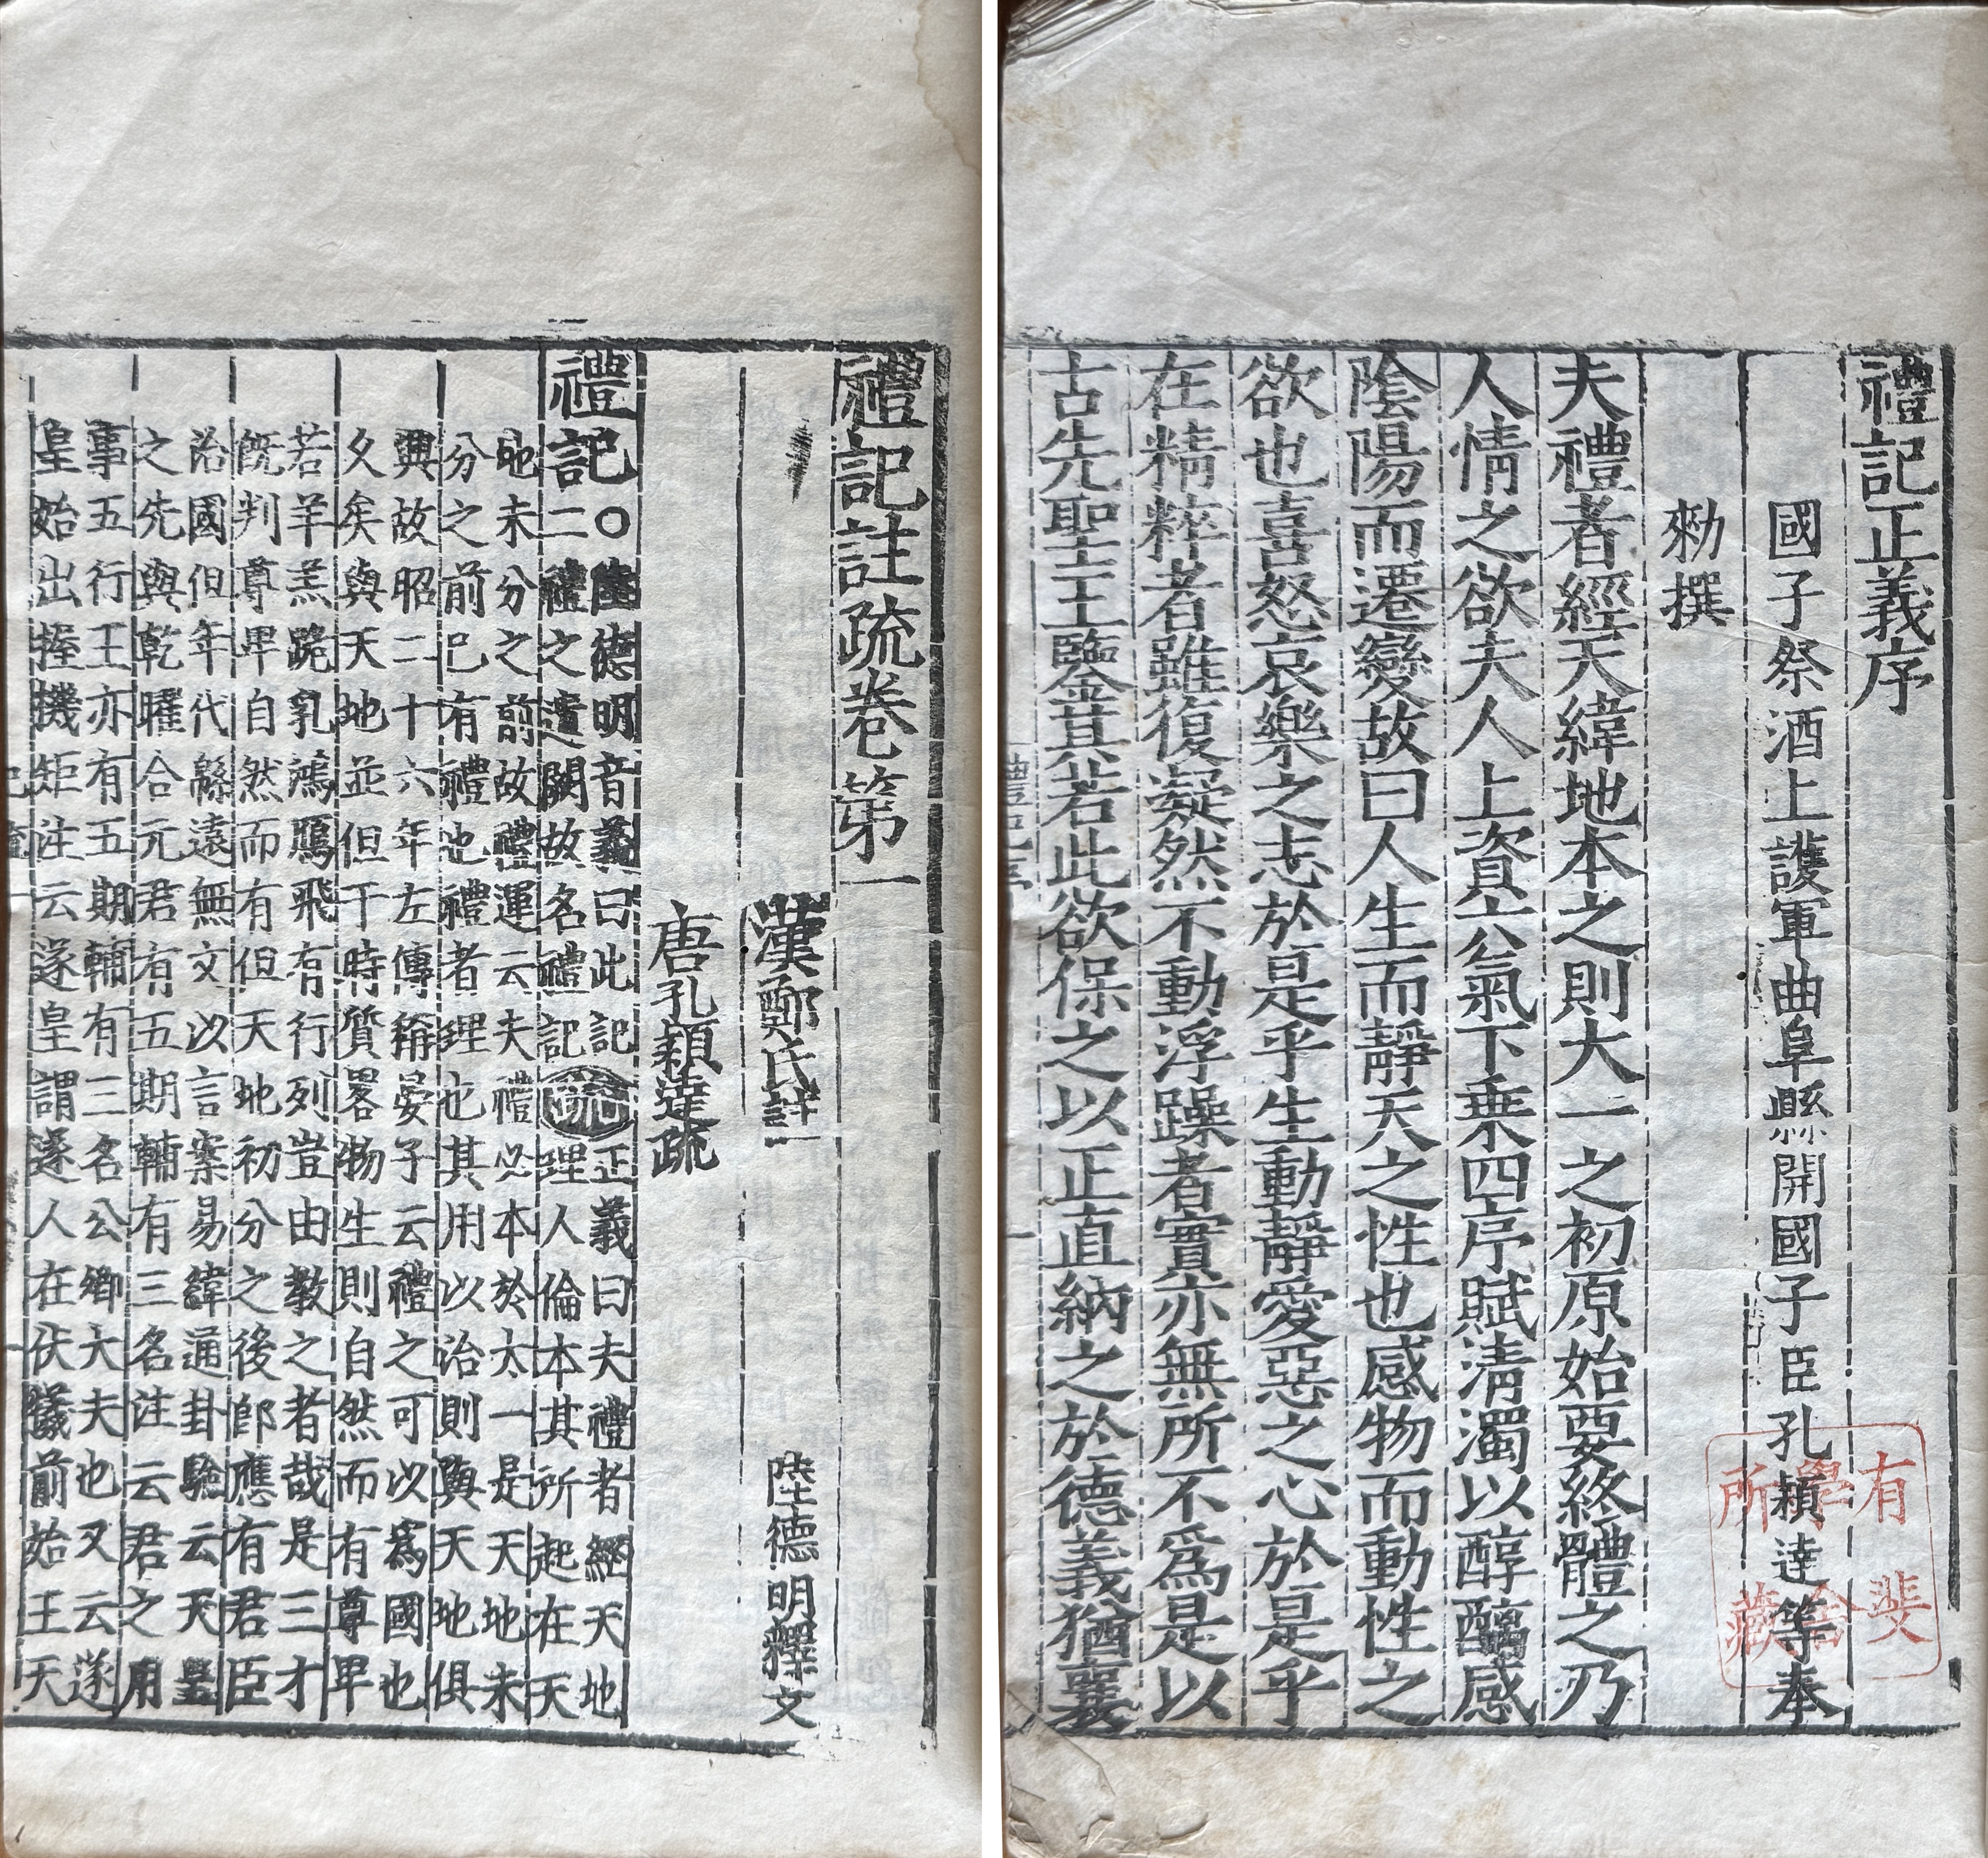 禮記正義序
國子祭酒上護軍曲阜縣開國子臣孔穎達等奉
勑撰
夫禮者經天緯地本之則大一之初原始要終體之乃
人情之欲夫人上資六氣下乗四序賦淸濁以醇醨感
陰陽而遷變故曰人生而靜天之性也感物而動性之
欲也喜怒哀樂之志於是乎生動靜愛惡之心於是乎
在精粹者雖復凝然不動浮躁者實亦無所不爲是以
古先聖王鑒其若此欲保之以正直納之於德義猶襄
有斐
學舍
所藏
禮記註疏卷第一
漢鄭氏註 陸德明釋文
唐孔穎達疏
禮記○陸德明音義曰此記
二禮之遺闕故名禮記
疏正義曰夫禮者經天地
理人倫本其所起在天
地未分之前故禮運云夫禮必本於太一是天地未
分之前已有禮也禮者理也其用以治則與天地俱
興故昭二十六年左傳稱晏子云禮之可以爲國也
久矣與天地並但于時質畧物生則自然而有尊卑
若羊羔跪乳鴻鴈飛有行列豈由教之者哉是三才
既判尊卑自然而有但天地初分之後即應有君臣
治國但年代緜遠無文以言案易緯通卦驗云天皇
之先與乾曜合元君有五期輔有三名注云君之用
事五行王亦有五期輔有三名公卿大夫也又云遂
皇始出握機矩注云遂皇謂遂人在伏犧前始王天